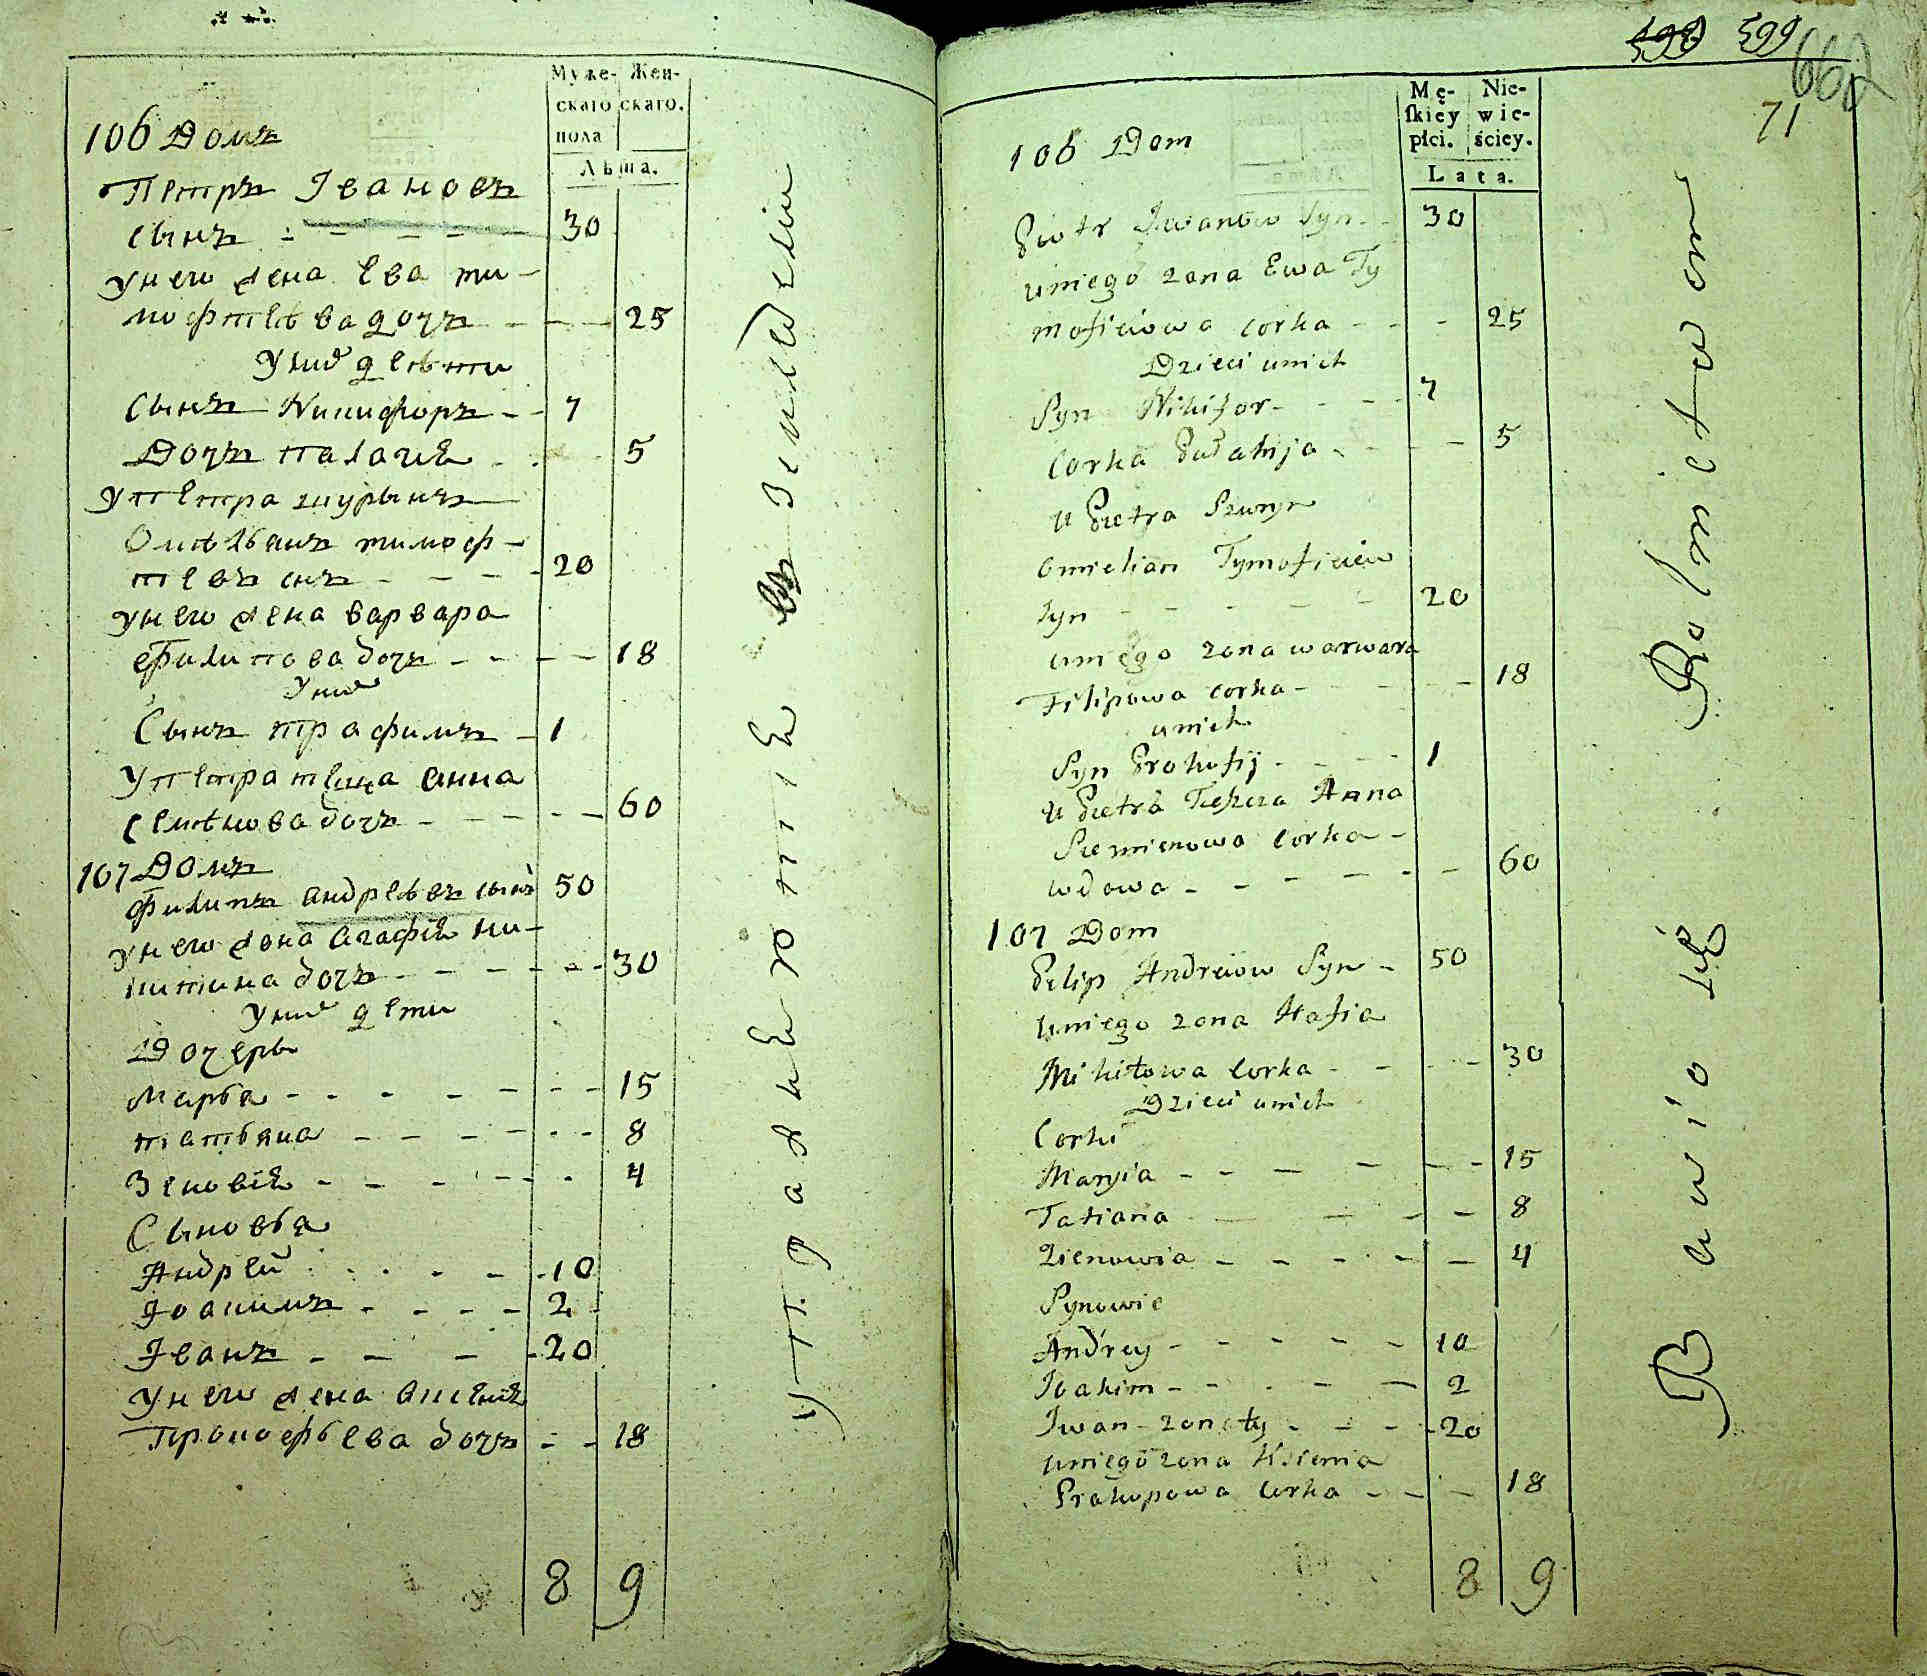 Муже- Жен-
скаго скаго.
пола
Лѣта.
106 Домъ
Петръ Івановъ
сынъ - - - - - 30
Унего жена Ева ти-
мофѣева дочъ - - - 25
Унихъ дѣти
Сынъ Никифоръ - - 7
Дочъ палагия - - - 5
Упетра шурынъ
Омѣльянъ тимоф-
еевъ снъ - - - - 20
унего жена варвара
Филипова дочъ - - - - 18
Уних
Сынъ трафимъ - 1
Упетра теща анна
Семѣнова дочъ - - - - - 60
107 Домъ
Филипъ андреѣвъ сынъ 50
Унего жена агафія ни-
китина дочъ - - - - - - 30
Уних дети
Дочеры
Марья - - - - - - - 15
татьяна - - - - - - 8
Зеновія - - - - - - 4
Сыновья
Андрей - - - - - 10
Іоакимъ - - - - 2
Іванъ - - - - 20
Унего жена
Прокофьева дочъ - - 18
8 9
599
662
71
Mę- Nie-
ſkiey wie-
płci. ściey.
Lata.
106 Dom
Piotr Jwanow Syn - - 30
uniego zona Ewa Ty
mofieiowa corka - - - 25
Dzieci unich
Syn Nikifor - - - - 7
Corka Pałahija - - - - 5
u Pietra Szuryn
Omielian Tymofieiew
syn - - - - - 20
uniego zona warwara
Filipowa corka - - - - 18
unich
Syn Prokofij - - - - 1
u Pietra Tieszcza Anna
Siemienowa Corka -
wdowa - - - - - - - 60
107 Dom
Filip Andreiow Syn - 50
Uniego zona Hafia
Mikitowa Corka - - - - 30
Dzieci unich
Corki
Maryia - - - - - - 15
Tatiana - - - - 8
Zienowia - - - - - 4
Synowie
Andrey - - - - - 10
Joakim - - - - - 2
Jwan - zonaty - - - - 20
uniego zona Ksienia
Prakopowa Corka - - - 18
8 9
Bawią się Rolnictwem